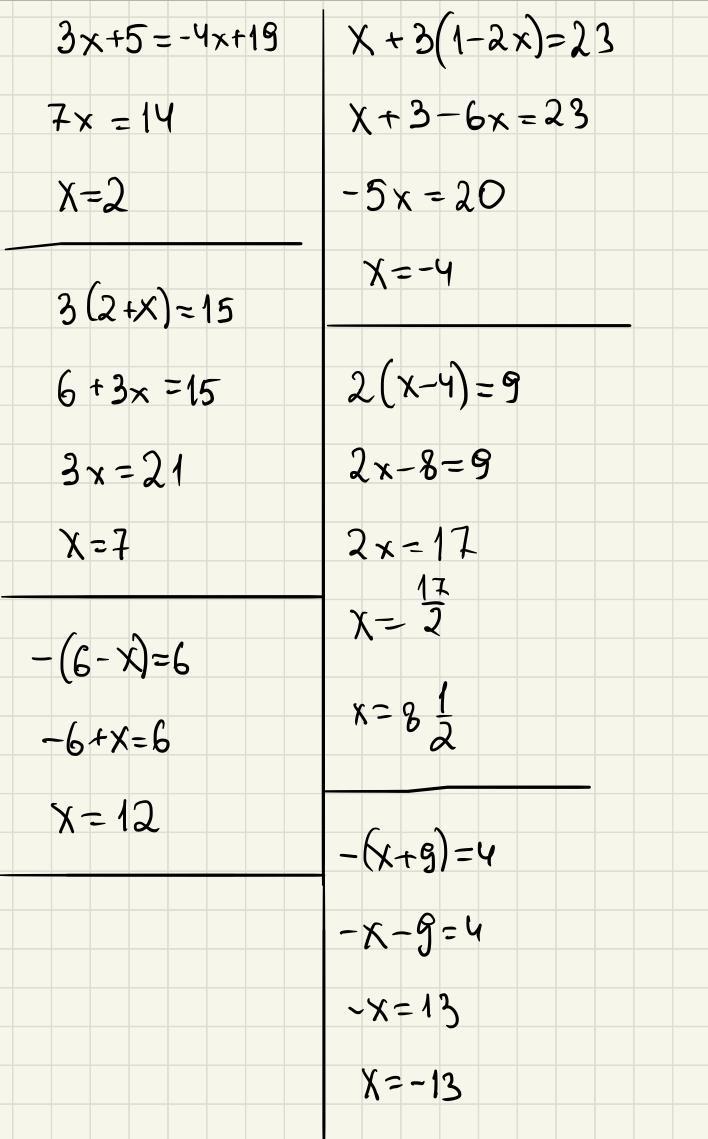 3x+5=-4x+19
7x=14
x=2
3(2+x)=15
6+3x=15
3x=21
x=7
-(6-x)=6
-6+x=6
x=12
x+3(1-2x)=23
x+3-6x=23
-5x=20
x=-4
2(x-4)=9
2x-8=9
2x=17
x=17/2
x=8 1/2
-(x+9)=4
-x-9=4
-x=13
x=-13